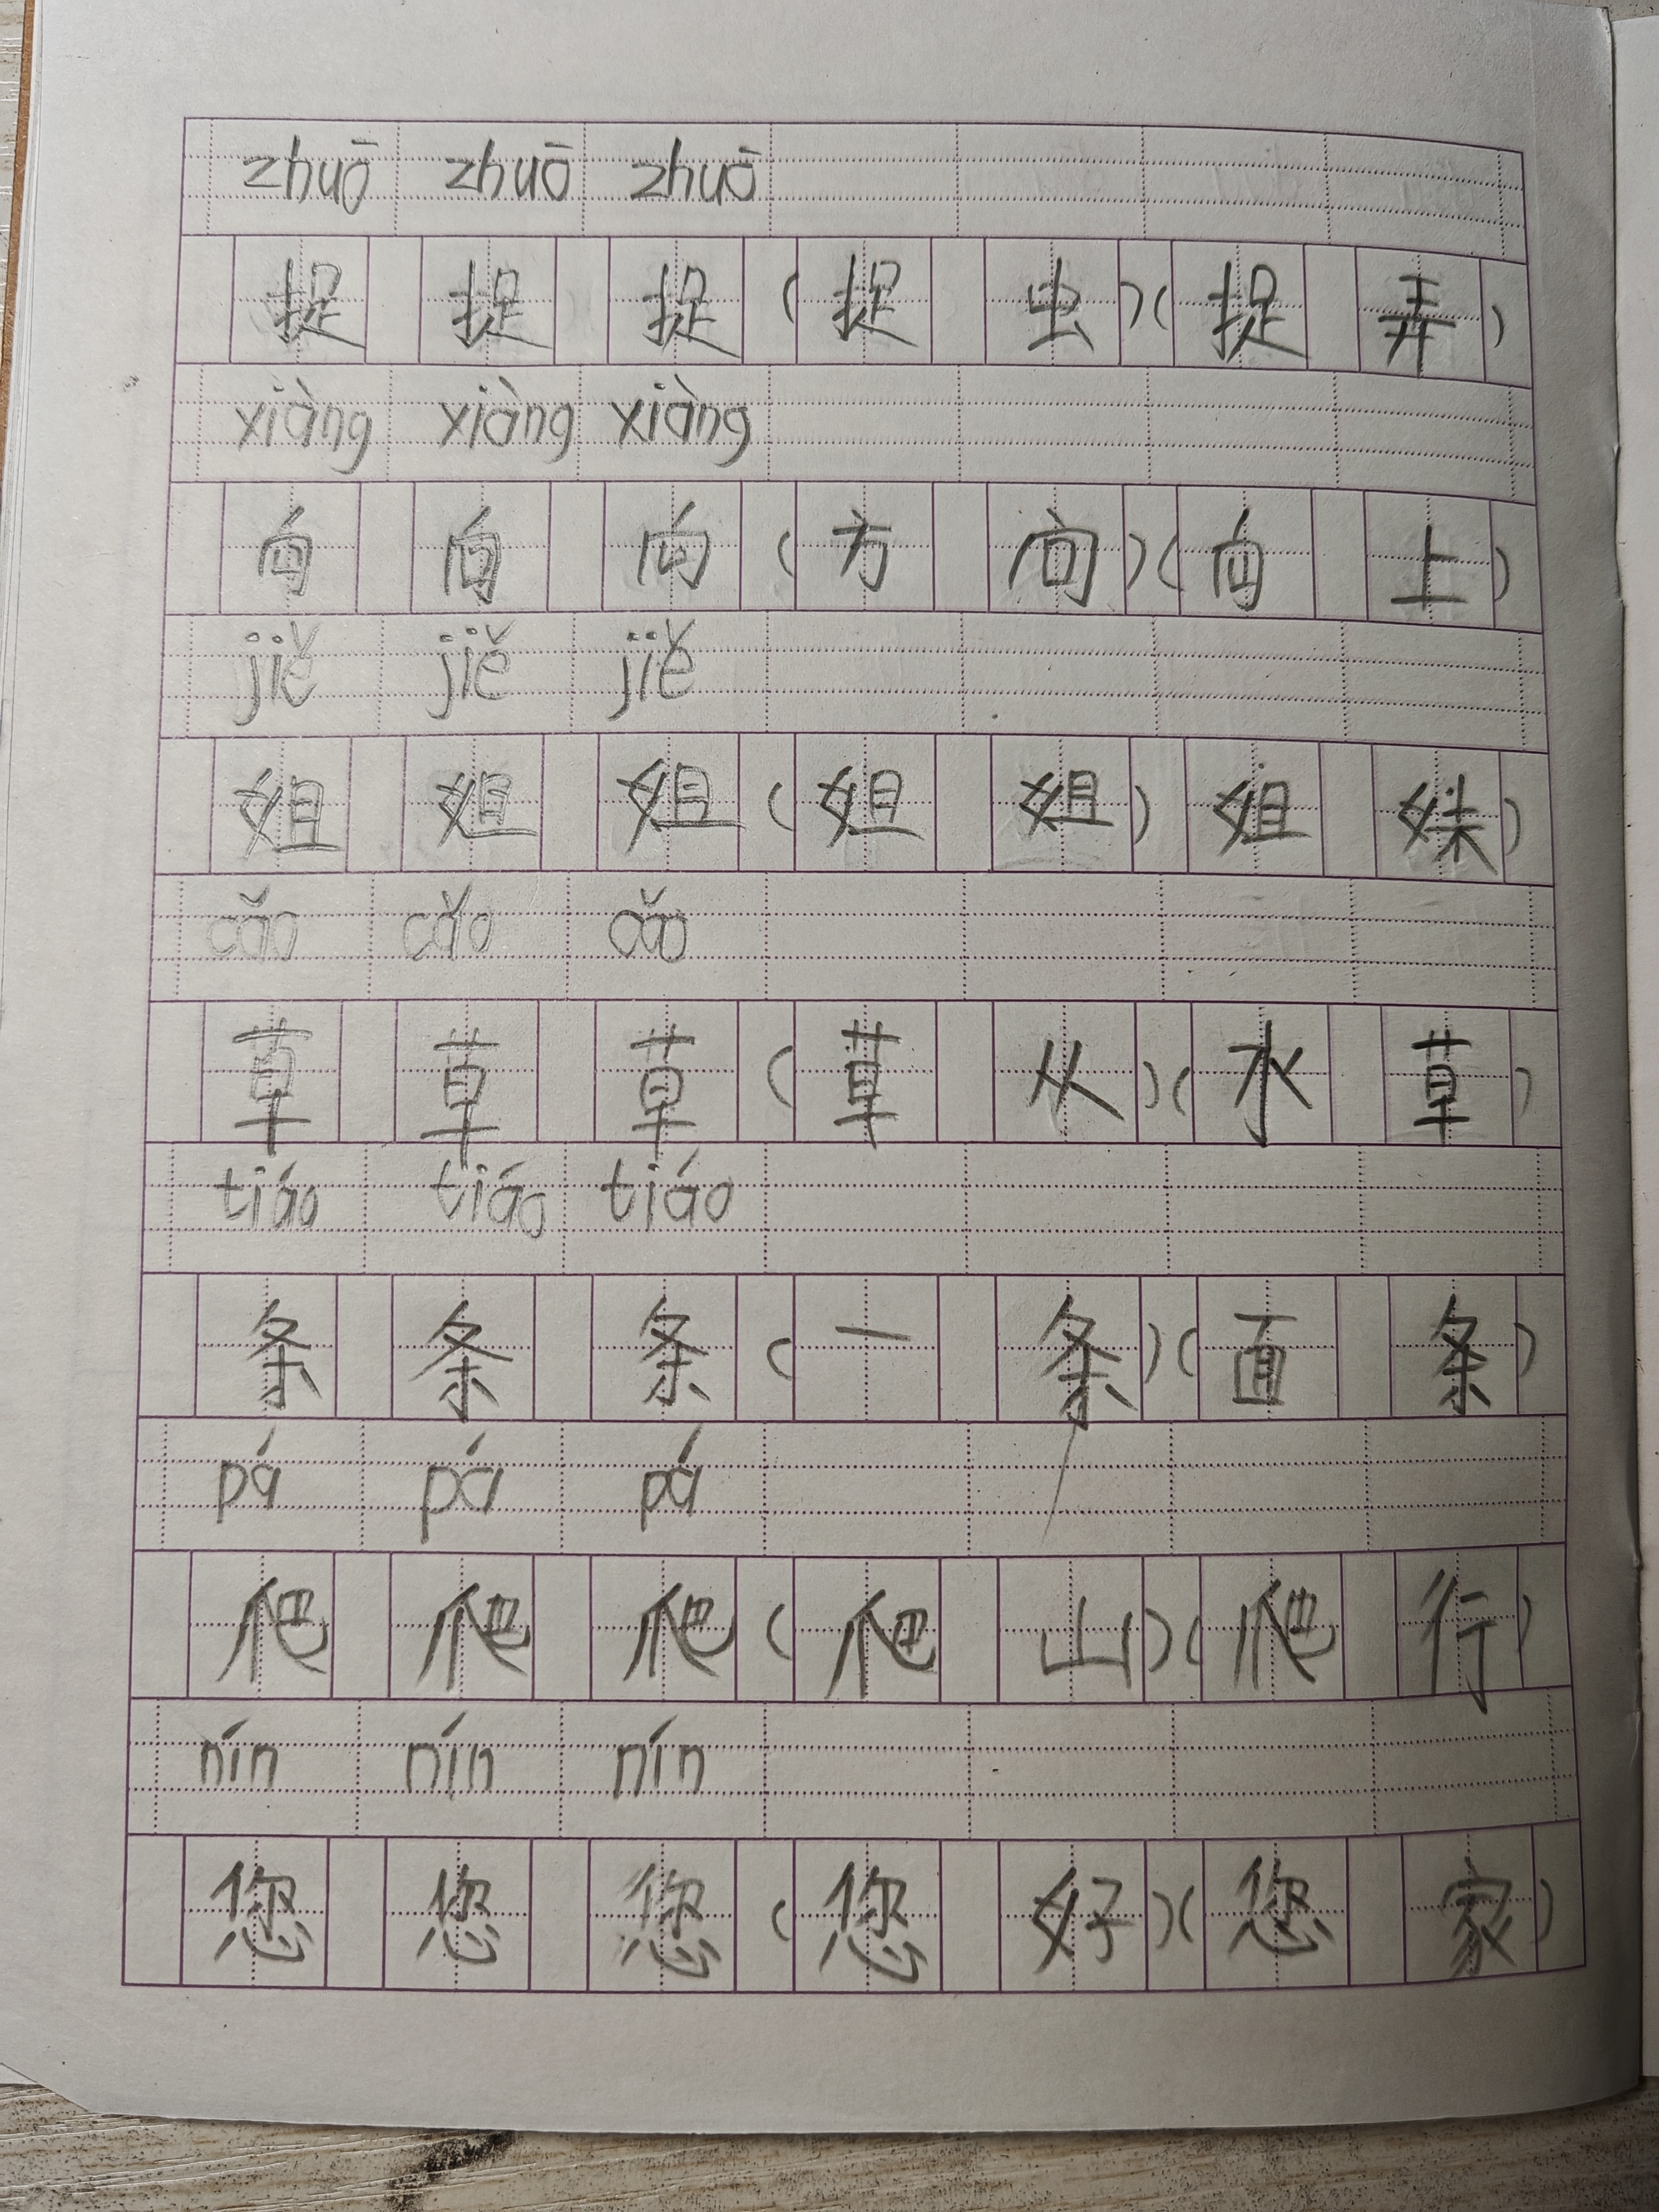 zhuō zhuō zhuō
捉 捉 捉 (捉 虫)(捉 弄)
xiàng xiàng xiàng
向 向 向 (方 向)(向 上)
jiě jiě jiě
姐 姐 姐 (姐 姐) 姐 妹)
cǎo cǎo cǎo
草 草 草 (草 从)(水 草)
tiáo tiáo tiáo
条 条 条 (一 条)(面 条)
pá pá pá
爬 爬 爬 (爬 山)(爬 行)
nín nín nín
您 您 您 (您 好)(您 家)